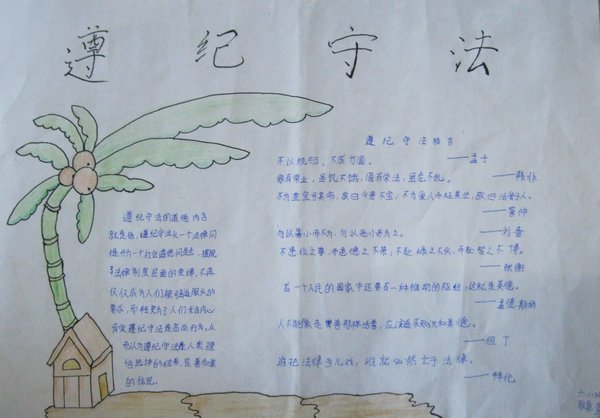 遵纪守法
遵纪守法格言
不以规矩，不成方圆。
——孟子
家有常业，虽饥不饿，国有常法，虽危不乱。
——韩非
不为重宝亏其命，故曰令贵于宝；不为爱人枉其法，故曰法爱于人。
——管仲
勿以善小而不为，勿以恶小而为之。
——刘备
不患位之不尊，而患德之不崇；不耻禄之不伙，而耻智之不博。
——张衡
在一个人民的国家中还要有一种推动的枢纽，这就是美德。
——孟德斯鸠
人不能像走兽那样活着，应该追求知识和美德。
——但丁
谁把法律当儿戏，谁就必然亡于法律。
——拜伦
遵纪守法的道德内含
就是说，遵纪守法从一个法律问
题而为一个社会道德问题，摆脱
了法律制度层面的束缚，不再
仅仅成为人们被强迫服从的
要求，而转变为了人们发自内心
肯定遵纪守法是高尚行为，从
而认为遵纪守法是人类理
性选择的结果，是善和美
的体现。